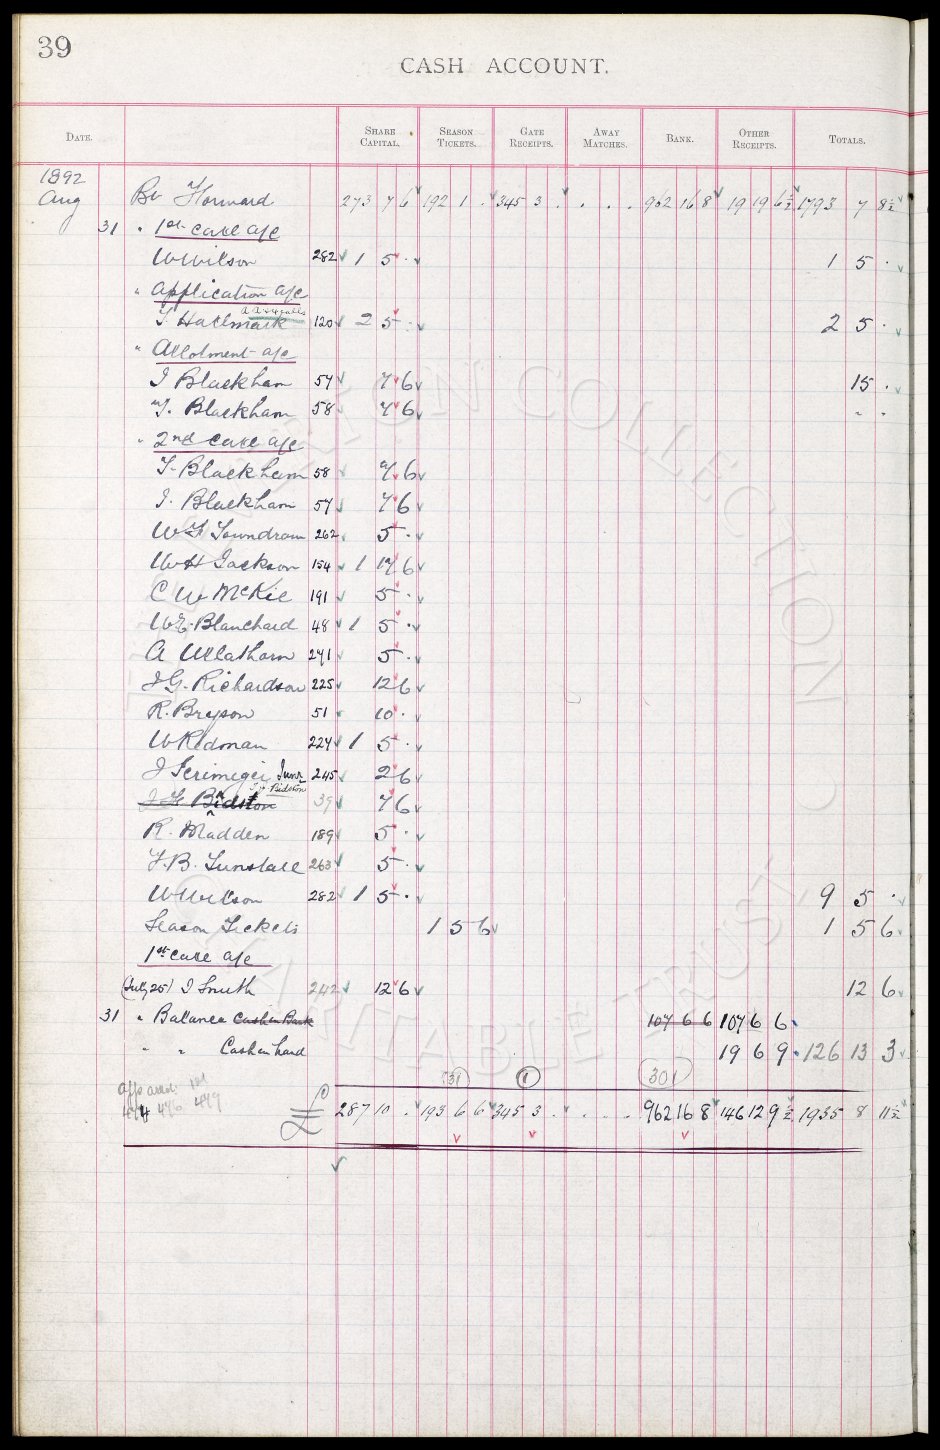 39
CASH ACCOUNT.
DATE. SHARE CAPITAL. SEASON TICKETS. GATE RECEIPTS. AWAY MATCHES. BANK. OTHER RECEIPTS. TOTALS.
1892
Aug Bt Forward 273 7 6 192 1 . 345 3 . . . . 962 16 8 19 19 6½ 1793 7 8½
31 " 1st call a/c
W Wilson 282 1 5 . 1 5 .
" Application a/c
T Hallmark 120 2 5 . 2 5 .
" Allotment a/c
J Blackham 57 7 6 15 .
T. Blackham 58 7 6 " "
" 2nd call a/c
T. Blackham 58 7 6
J. Blackham 57 7 6
W F 262 5 .
W H Jackson 154 1 17 6
C W McKie 191 5 .
W E Blanchard 48 1 5 .
A Ullathorn 271 5 .
J G. Richardson 225 12 6
R. Bryson 51 10 .
W Redman 224 1 5 .
J Junr 245 2 6
Bidston 39 7 6
R. Madden 189 5 .
F. B. Tunstall 263 5 .
W Wilson 282 1 5 . 9 5 .
Season Tickets 1 5 6 1 5 6
1st call a/c
(July 25) J Smith 242 12 6 12 6
31 " Balance Cash in Bank 107 6 6 107 6 6
" " Cash in hand 19 6 9 126 13 3
31 1 301
474 476 479
£ 287 10 . 193 6 6 345 3 . . . . 962 16 8 146 12 9½ 1935 8 11½
EVERTON COLLECTION
CHARITABLE TRUST